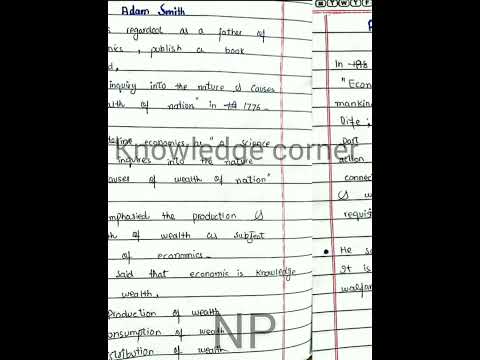 Adam Smith
regarded as a father of
, publish a book
inquiry into the nature & causes
of nation" in 1776.
define economics as "a science
inquires into the nature
causes of wealth of nation"
emphasied the production &
of wealth as subject
of economics.
said that economic is knowledge
wealth.
Production of wealth
Consumption of wealth
Distribution of wealth
In
"Econ
mankin
Life ;
part
action
connec
& w
requis
He s
It is
walfar
Knowledge corner
NP